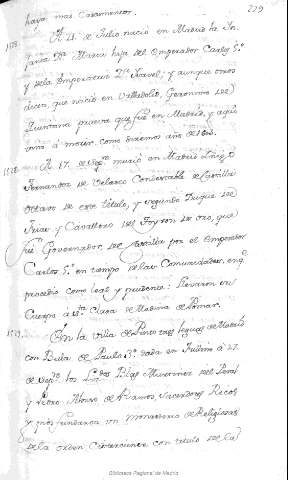 229
haya mas Casamentos.
1528 A 21. de Julio nació en Madrid la In
fanta Dª. Maria hija del Emperador Carlos 5º.
y de la Emperatriz Dª. Isavel; y aunque otros
dicen, que nació en Valladolid, Geronimo de
Quintana prueva que fué en Madrid, y aqui
vino á morir como diremos año de
1528 A 17. de Sepᵉ. murió en Madrid Iñigo
Fernandez de Velasco Condestable de Castilla
octavo de este título, y segundo Duque de
Frias y Cavallero del Toyson de oro, que
fué Governador de Castilla por el Emperador
Carlos 5º. en tiempo de las Comunidades, en q.
procedio como leal y prudente: llevaron su
Cuerpo á Sᵗᵃ. Clara de Medina de Pomar.
1529 En la villa de Pinto tres leguas de Madrid
con Bula de Paulo 3º. dada en á 27.
de Sepᵉ. los Blas Martinez del Peral
y Pedro Alonso de Sacerdotes Ricos
y fundaron un Monasterio de Religiosas
de la orden Cisterciense con título de la
Biblioteca Regional de Madrid